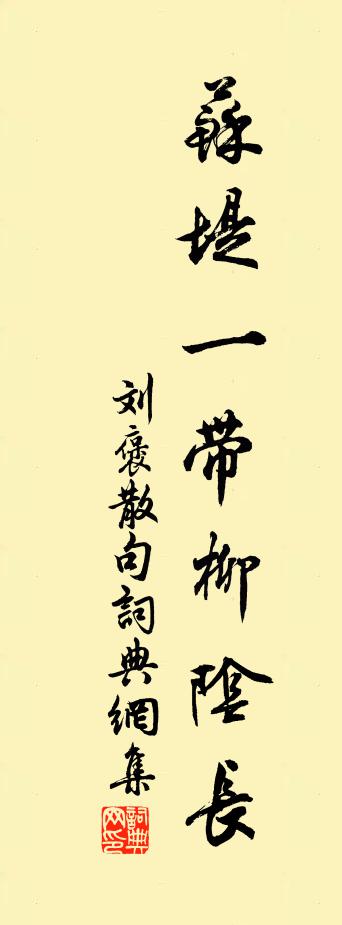 蘇堤一帶柳陰長
刘褒散句詞典網集
詞典网印